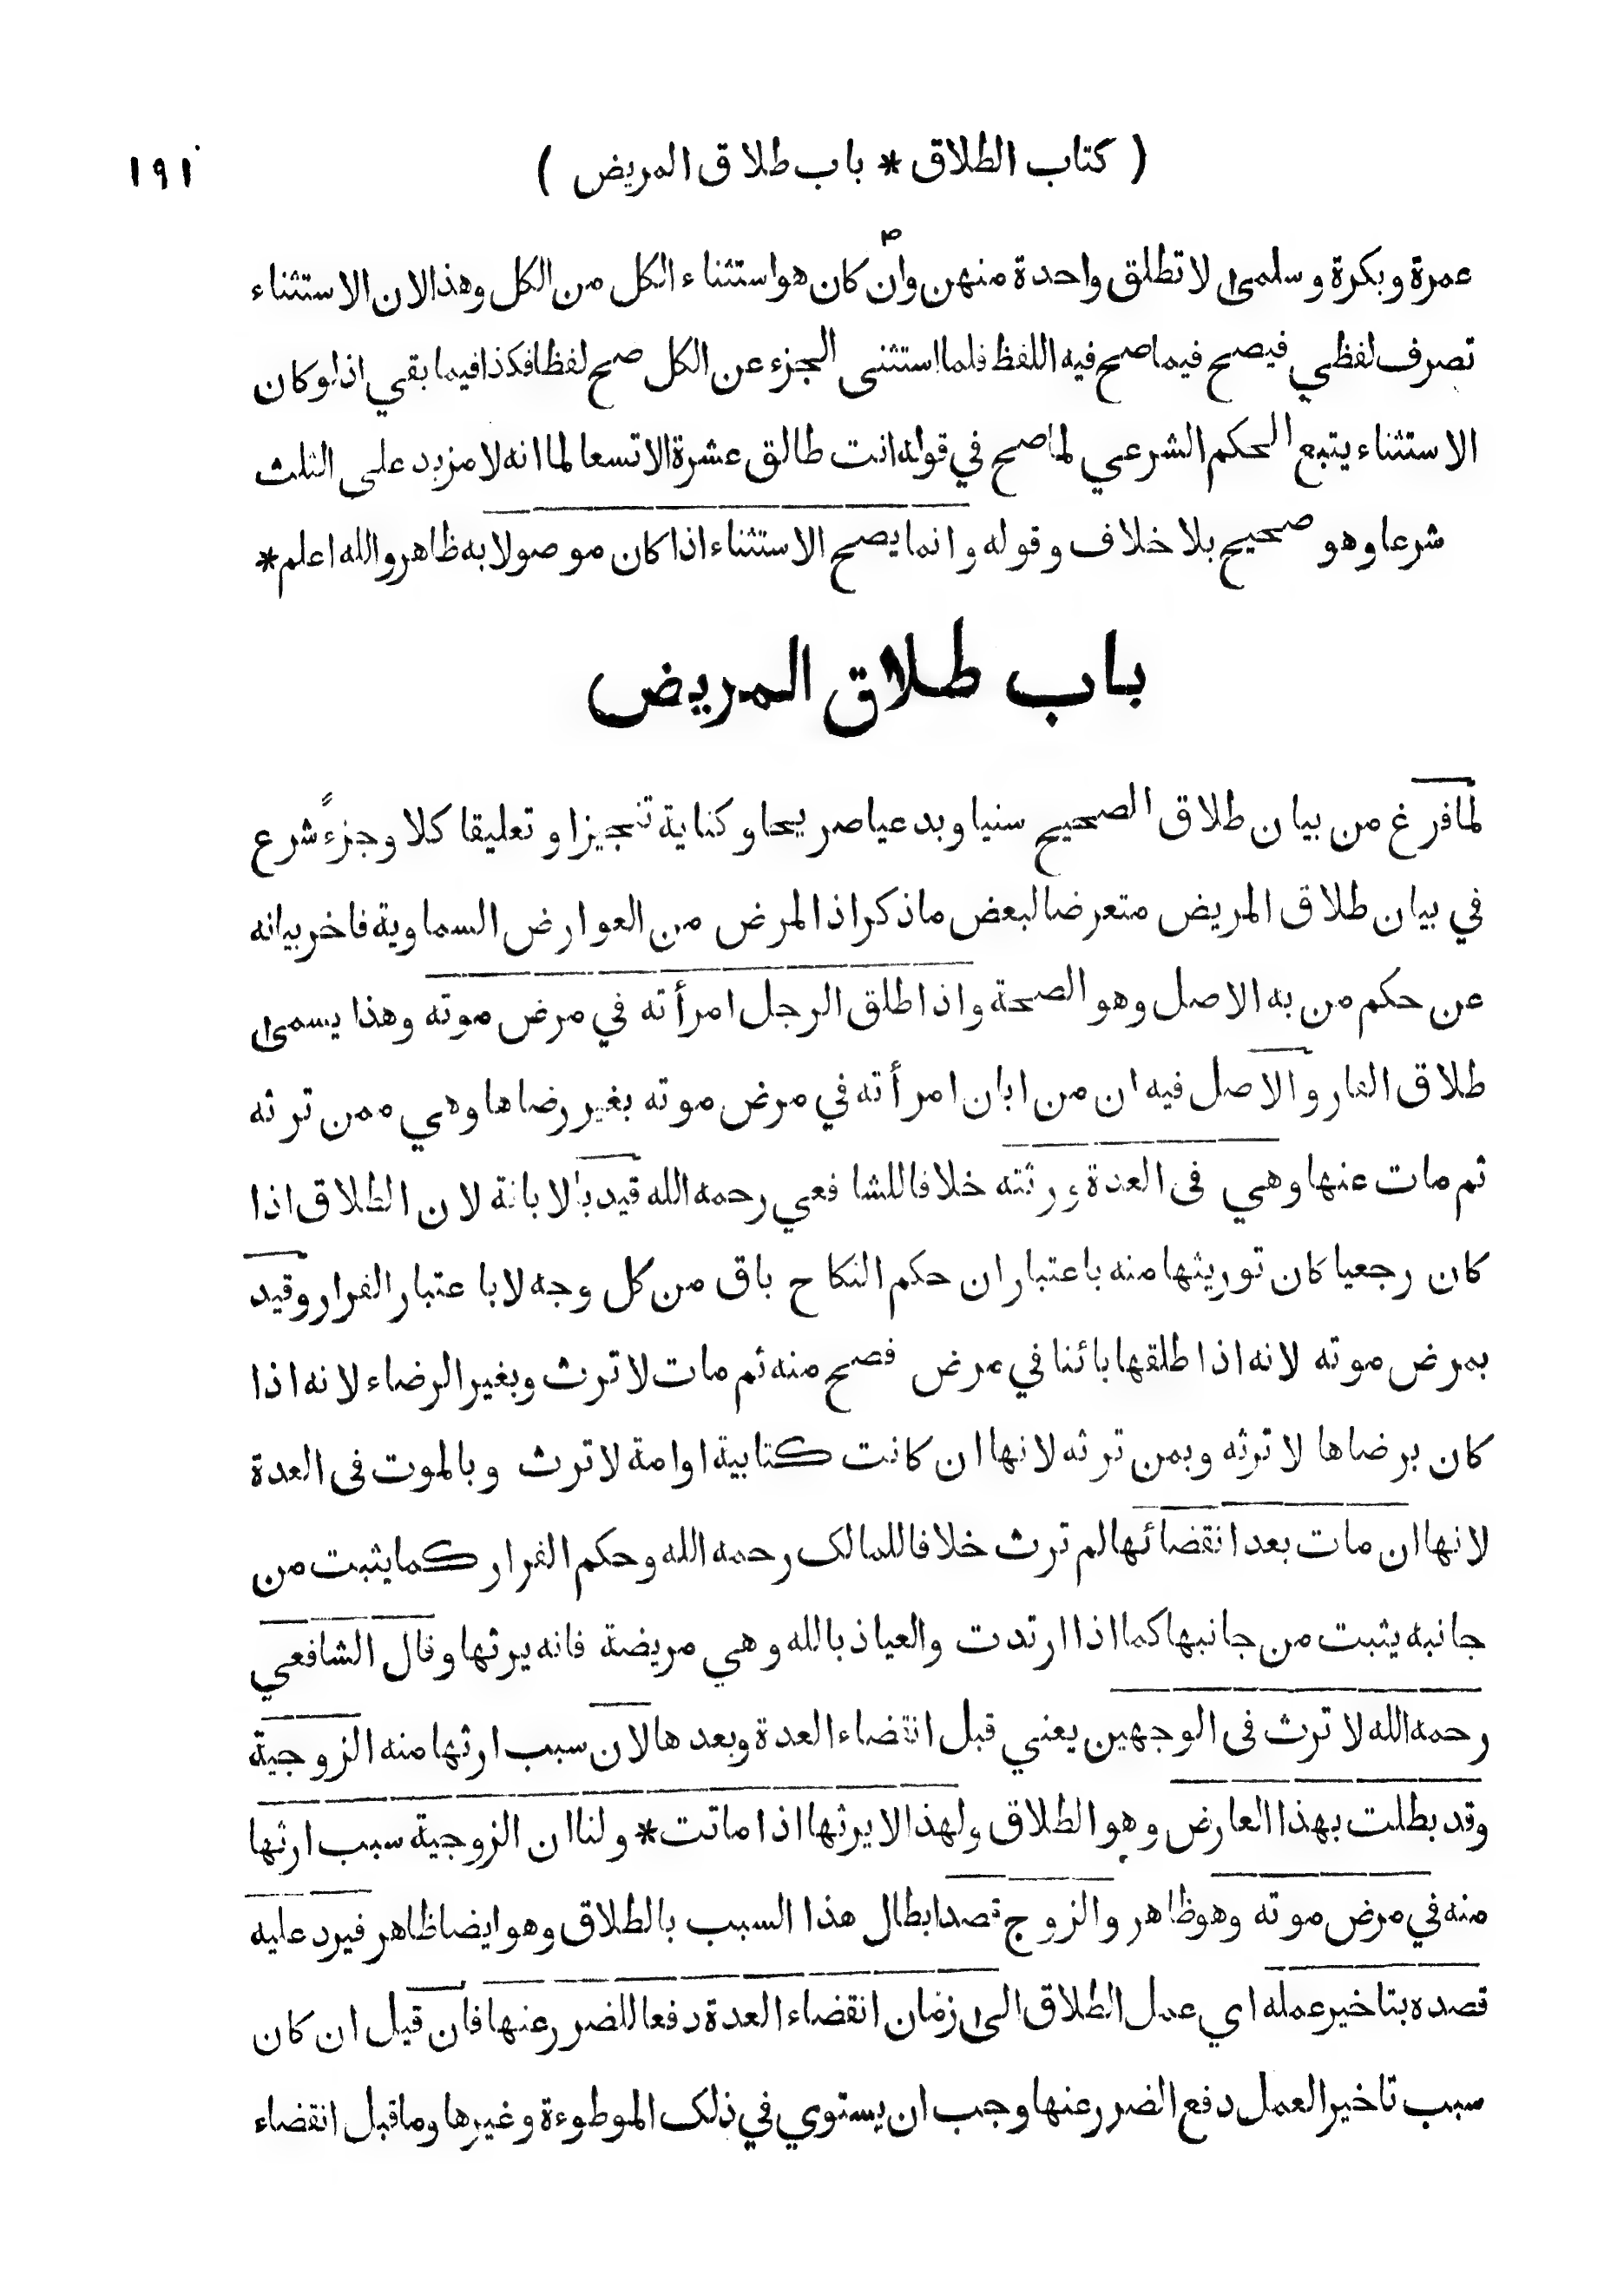 ( كتاب الطلاق * باب طلاق المريض ) ١٩١
عمرة وبكرة وسلمى لا تطلق واحدة منهن وان كان هو استثناء الكل من الكل وهذا لان الاستثناء
تصرف لفظي فيصح فيما صح فيه اللفظ فلما استثنى الجزء عن الكل صح لفظا فكذا فيما بقي اذ لو كان
الاستثناء يتبع الحكم الشرعي لما صح في قوله انت طالق عشرة الا تسعا لما انه لا مزيد على الثلث
شرعا وهو صحيح بلا خلاف وقوله وانما يصح الاستثناء اذا كان موصولا به ظاهر والله اعلم *
باب طلاق المريض
لما فرغ من بيان طلاق الصحيح سنيا وبدعيا صريحا وكناية تنجيزا وتعليقا كلا وجزءً شرع
في بيان طلاق المريض متعرضا لبعض ما ذكر اذ المرض من العوارض السماوية فاخر بيانه
عن حكم من به الاصل وهو الصحة واذا طلق الرجل امرأته في مرض موته وهذا يسمى
طلاق الفار والاصل فيه ان من ابان امرأته في مرض موته بغير رضاها وهي ممن ترثه
ثم مات عنها وهي فى العدة ورثته خلافا للشافعي رحمه الله قيد بالابانة لان الطلاق اذا
كان رجعيا كان توريثها منه باعتبار ان حكم النكاح باق من كل وجه لا باعتبار الفرار وقيد
بمرض موته لانه اذا طلقها بائنا في مرض فصح منه ثم مات لا ترث وبغير الرضاء لانه اذا
كان برضاها لا ترثه وبمن ترثه لانها ان كانت كتابية او امة لا ترث وبالموت فى العدة
لانها ان مات بعد انقضائها لم ترث خلافا للمالك رحمه الله وحكم الفرار كما يثبت من
جانبه يثبت من جانبها كما اذا ارتدت والعياذ بالله وهي مريضة فانه يرثها وقال الشافعي
رحمه الله لا ترث فى الوجهين يعني قبل انقضاء العدة وبعدها لان سبب ارثها منه الزوجية
وقد بطلت بهذا العارض وهو الطلاق ولهذا لا يرثها اذا ماتت * ولنا ان الزوجية سبب ارثها
منه في مرض موته وهو ظاهر والزوج قصد ابطال هذا السبب بالطلاق وهو ايضا ظاهر فيرد عليه
قصده بتاخير عمله اي عمل الطلاق الى زمان انقضاء العدة دفعا للضرر عنها فان قيل ان كان
سبب تاخير العمل دفع الضرر عنها وجب ان يستوي في ذلك الموطوءة وغيرها وما قبل انقضاء